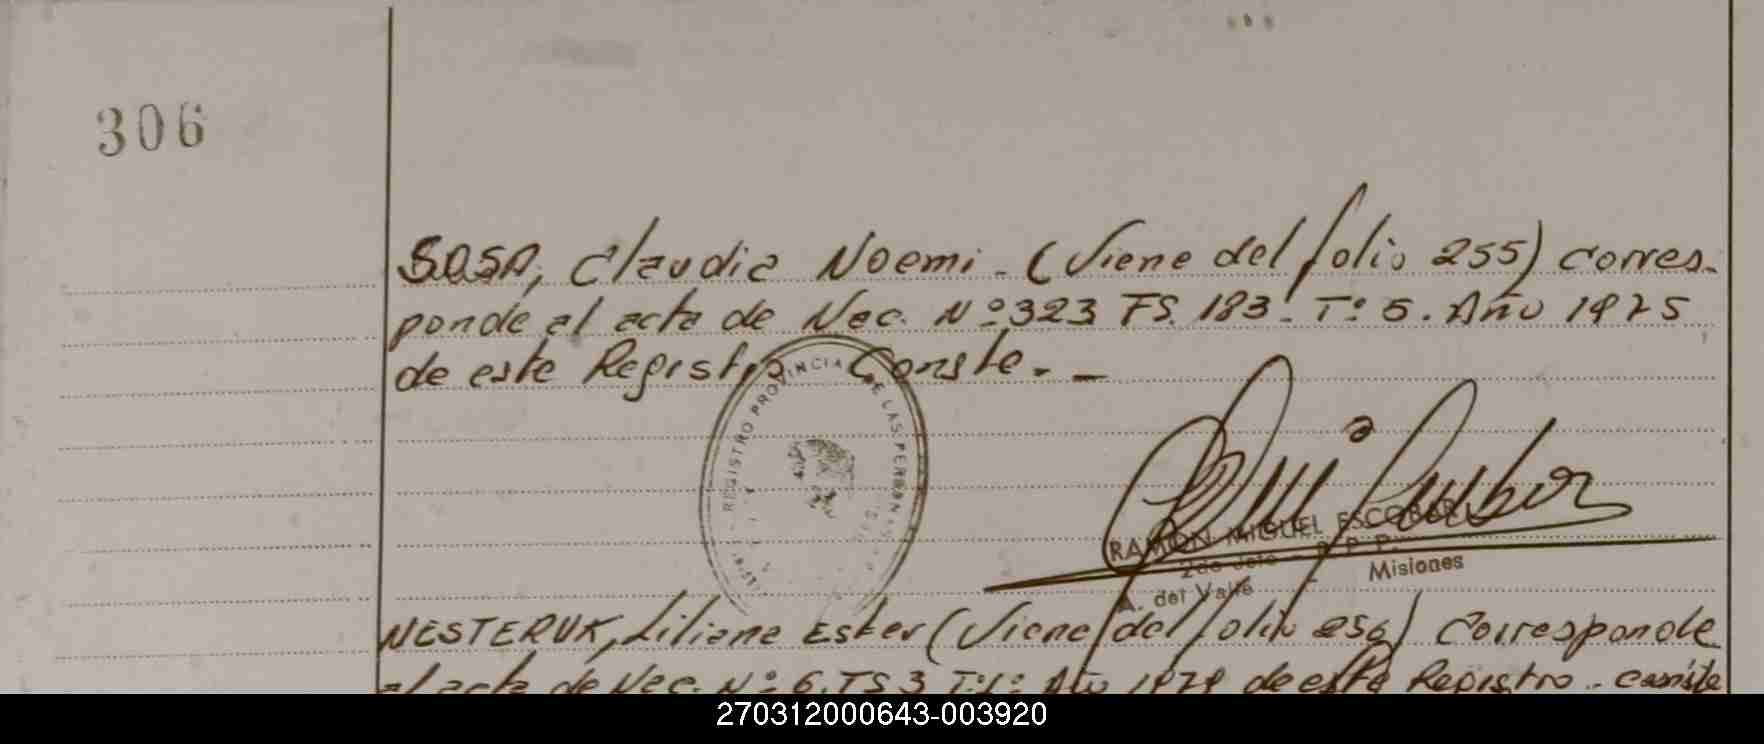 306
SOSA, Claudia Noemi. (Viene del folio 255) corres-
ponde al acta de Nac. Nº 323 FS. 183. Tº 5. Año 1975
de este Registro Conste. -
REGISTRO PROVINCIAL DE LAS PERSONAS
RAMON MIGUEL ESCOBAR
2do Jefe R. P. P.
A. del Valle - Misiones
NESTERUK, Liliana Ester (Viene del folio 256) Corresponde
al acta de Nac. Nº 6. FS 3 Tº 1º Año 1979 de este Registro. conste
270312000643-003920